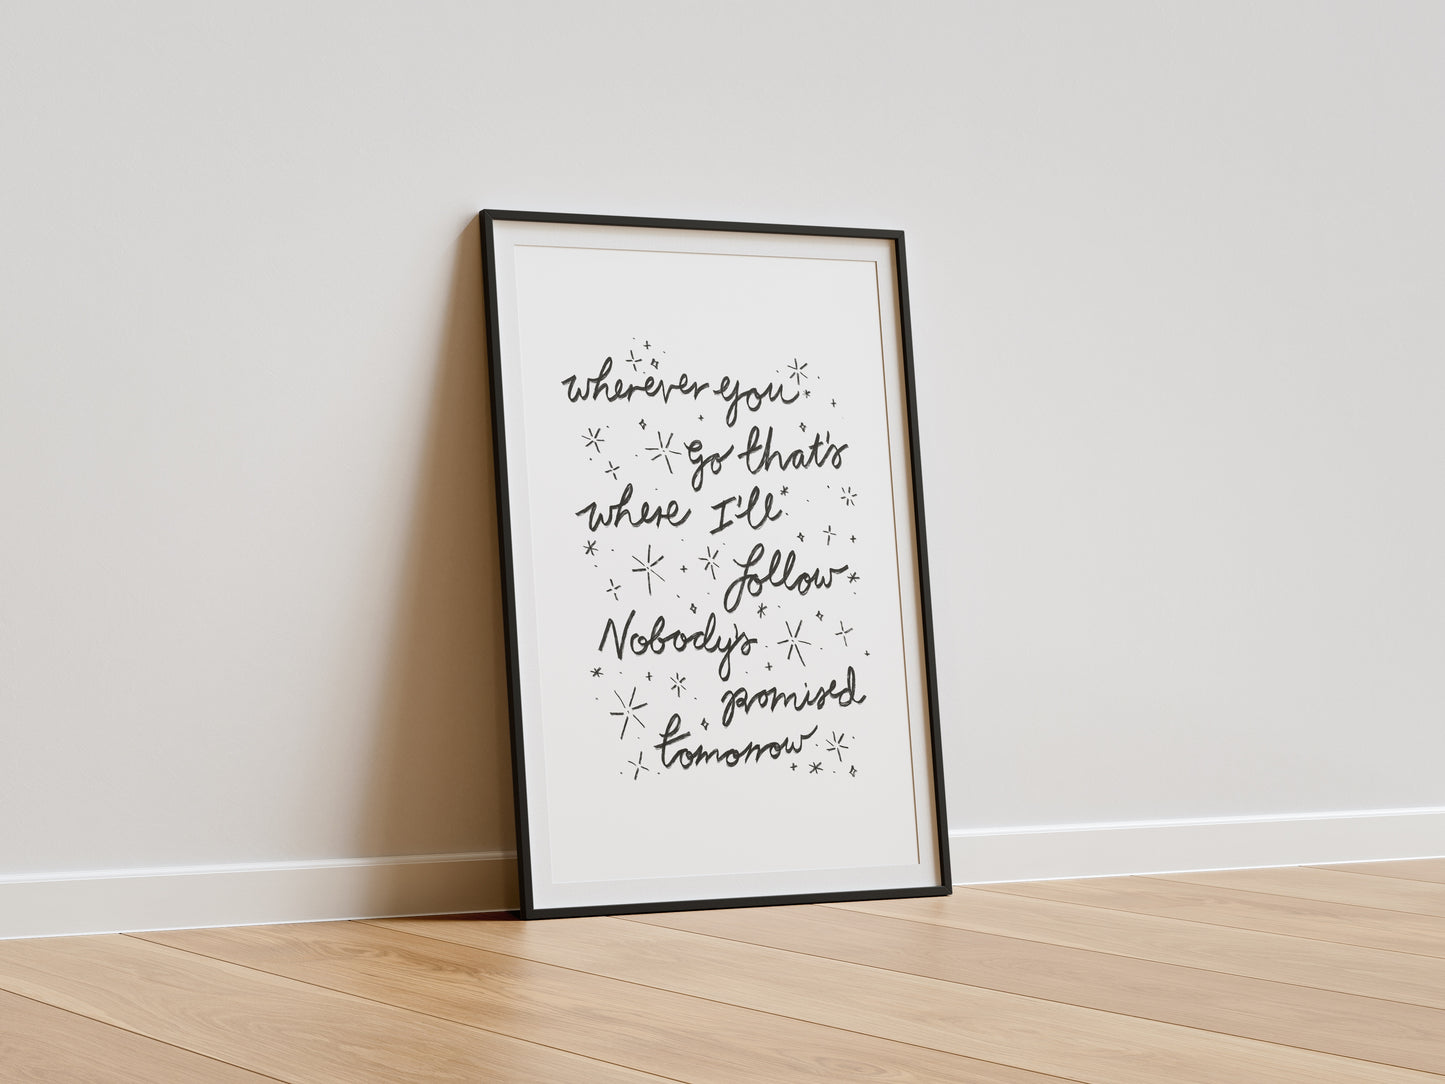 wherever you
go that's
where I'll
follow
Nobody's
promised
tomorrow